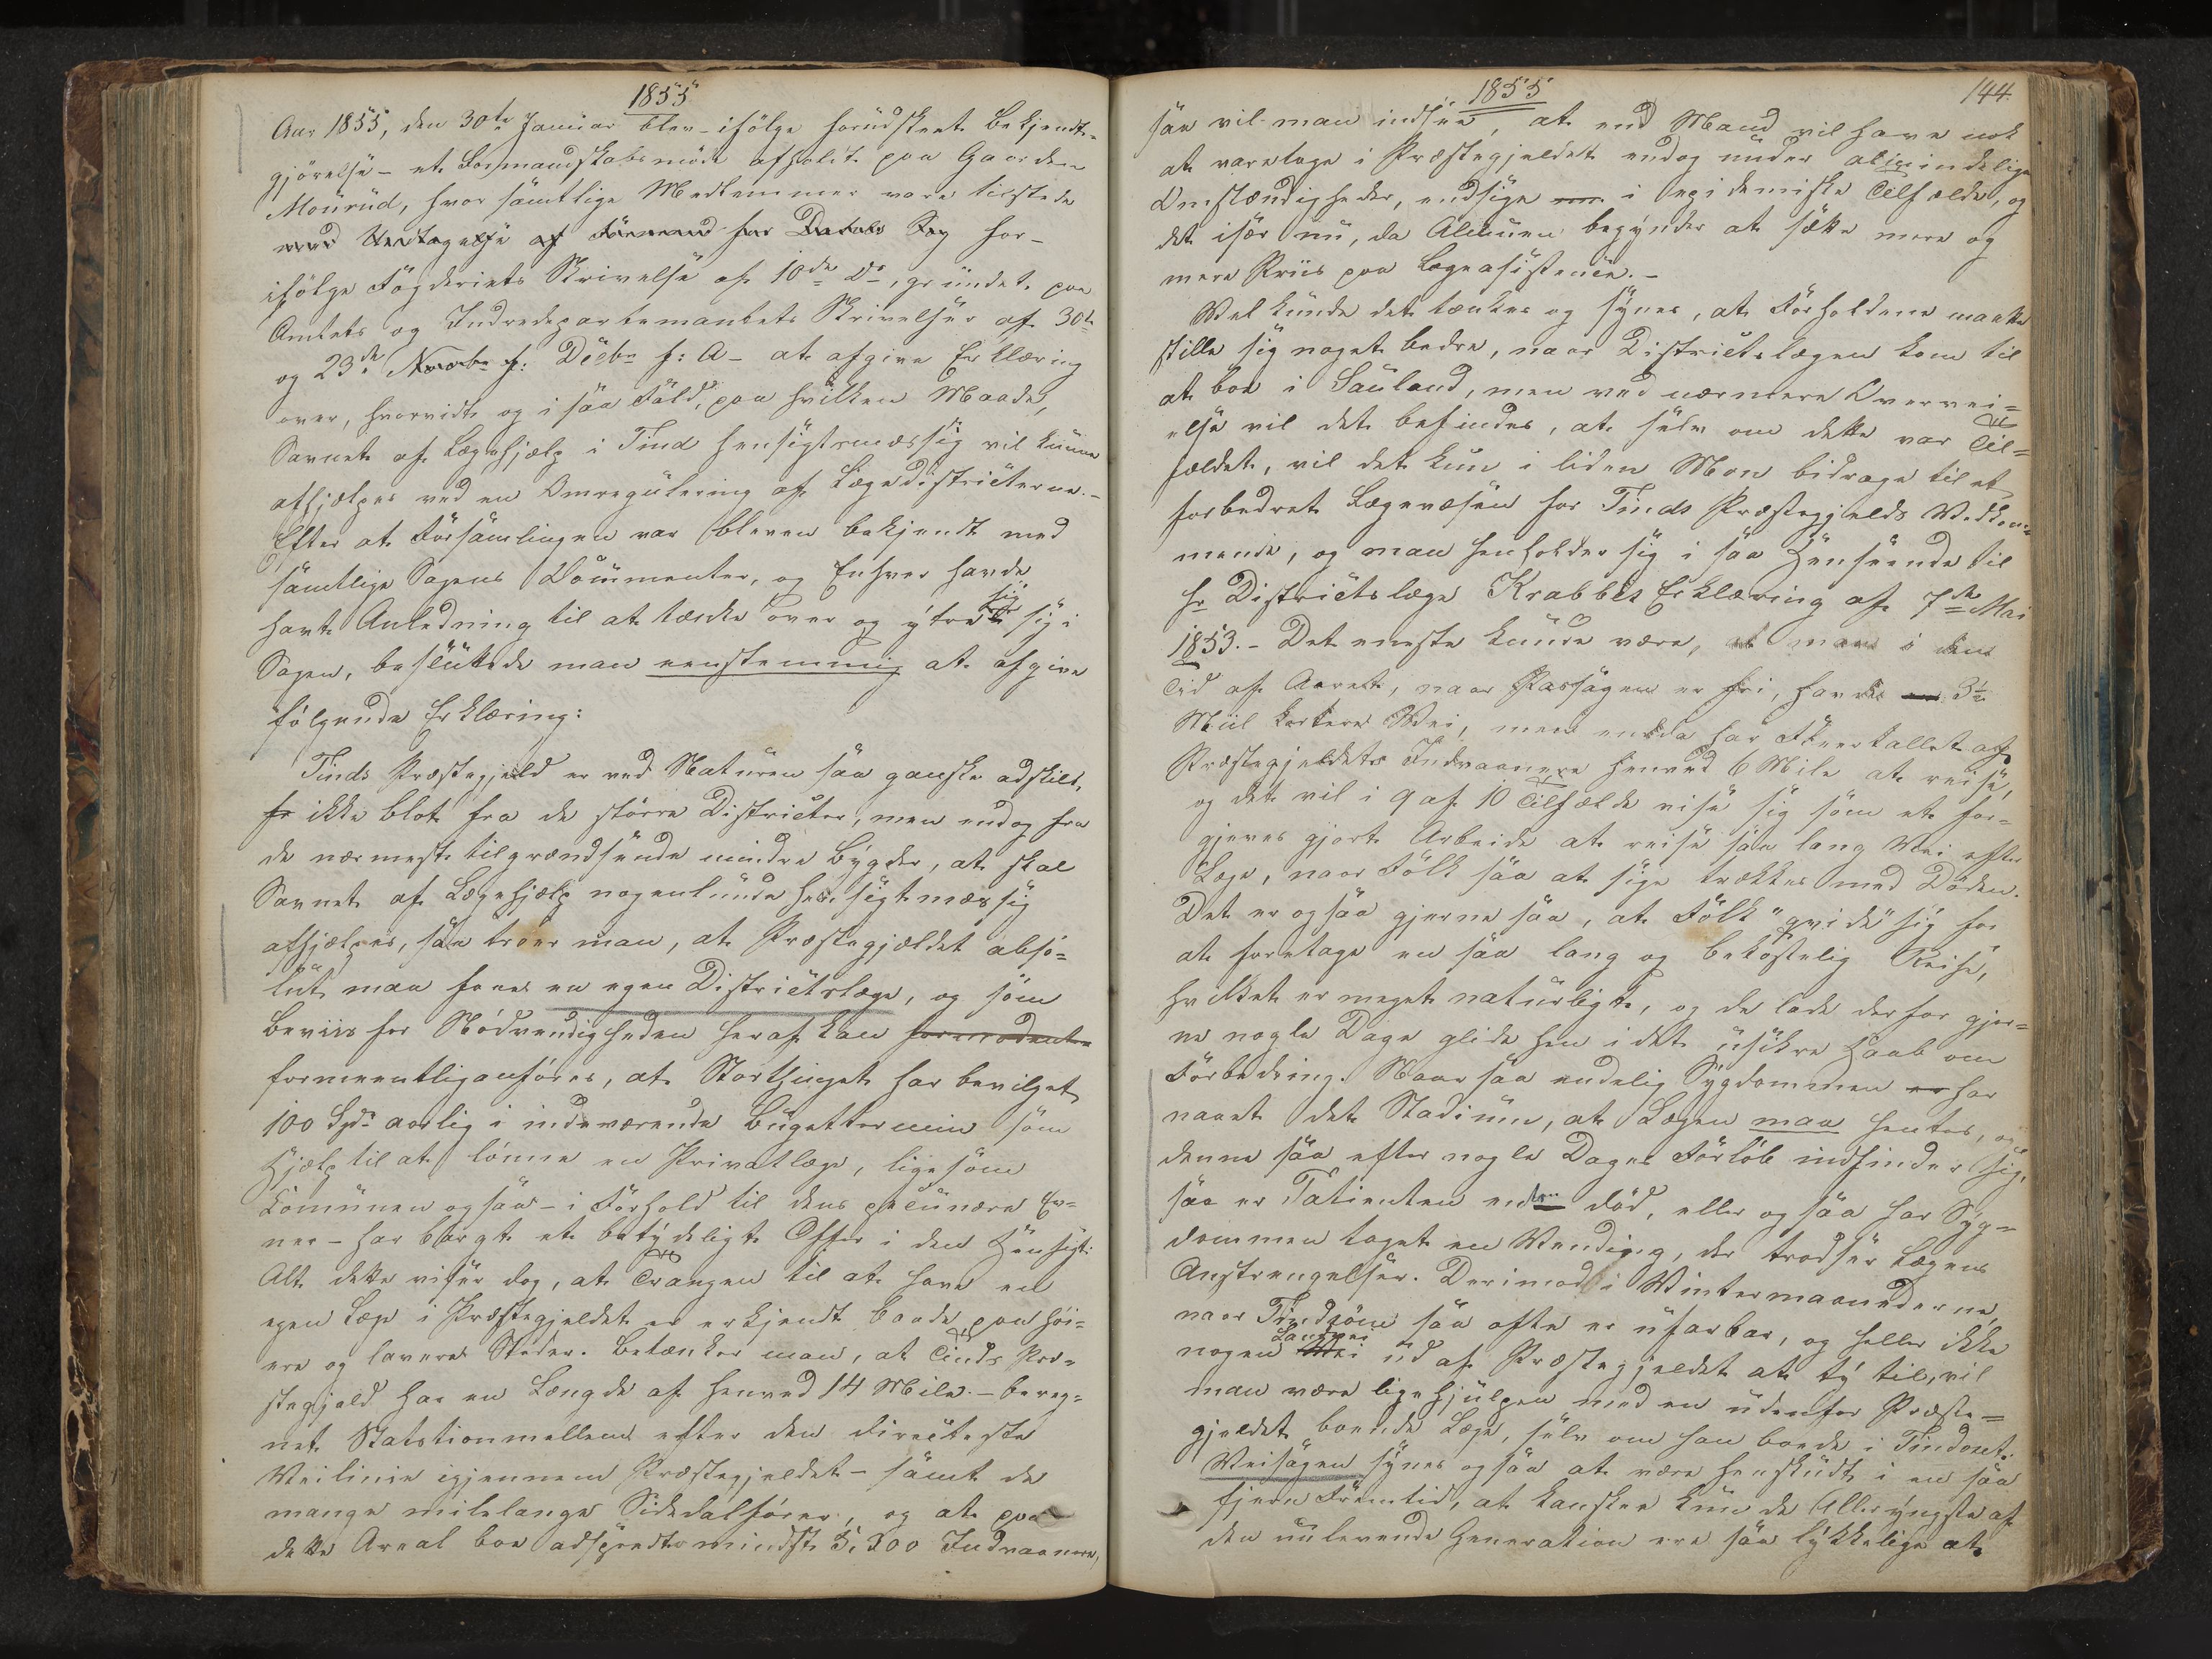 1855
Aar 1855, den 30te Januar blev - ifölge forudskeet Bekjendt-
gjörelse - et Formandskabsmöde afholdt paa Gaarden
Mourud, hvor samtlige Medlemmer vare tilstede
med Undtagelse af Formand for
ifölge Fogderiets Skrivelse af 10de ds, grundet paa
Amtets og Indredepartementets Skrivelser af 30te
og 23de Novbr f: Decbr f: A - at afgive Erklæring
over, hvorvidt og i saa Fald, paa hvilken Maade,
Savnet af Lægehjælp i Tind hensigtsmæssig vil kunne
afhjælpes ved en Omregulering af Lægedistricterne. -
Efter at Forsamlingen var bleven bekjendt med
samtlige Sagens Documenter, og Enhver havde
havt Anledning til at tænke over og ytre sig i
Sagen, besluttede man eenstemmig at afgive
fölgende Erklæring:
Tinds Præstegjeld er ved Naturen saa ganske adskilt,
fr ikke blot fra de större Districter, men endog fra
de nærmest tilgrændsende mindre Bygder, at skal
Savnet af Lægehjælp nogenlunde hensigtmæssig
afhjælpes, saa troer man, at Præstegjældet abso=
lut maa faae en egen Districtslæge, og som
Beviis for Nödvendigheden heraf kan formodent
formeentlig anföres, at Storthinget har bevilget
100 Spd aarlig i indeværende Bugettermin som
Hjælp til at lönne en Privatlæge, ligesom
Comunen ogsaa - i Forhold til dens pecunære Ev=
ner - har bragt et betydeligt Offer i den Hensigt.
Alt dette viser dog, at Trangen til at have en
egen Læge i Præstegjeldet er erkjendt baade paa höi=
ere og lavere Steder. Betænker man, at Tinds Præ=
stegjeld har en Længde af henved 14 Mile - bereg=
net Statstionmellem efter den directeste
Veilinie igjennem Præstegjeldet - samt de
mange milelange Sidedalförer, og at paa
dette Areal boe adspredte mindst 3,300 Indvaanere,
1855
144.
saa vil man indsee, at end Mand vil have nok
at varetage i Præstegjeldet endog under almindelige
Omstændigheder, endsige i epidemiske Tilfælde, og
det især nu, da Almuen begynder at sætte mere og
mere Priis paa Lægeasistence. -
Vel kunde det tænkes og synes, at Forholdene maatte
stille sig noget bedre, naar Districtslægen kom til
at boe i Sauland, men ved nærmere Overvei=
else vil det befindes, at selv om dette var Til=
fældet, vil det kun i liden Mon bidrage til et
forbedret Lægevæsen for Tinds Præstegjelds Vedkom=
mende, og man henholder sig i saa Henseende til
Hr Districtslæge Krabbes Erklæring af 7de Mai
1853. - Det eneste kunde være, at man i den
Tid af Aaret, naar Passagen er fri, havde 3½
Miil kortere Vei, men endda har Fleertallet af
Præstegjeldets Indvaanere henved 6 Mile at reise,
og det vil i 9 af 10 Tilfælde vise sig som et for=
gjeves gjort Arbeide at reise saa lang Vei efter
Læge, naar Folk saa at sige trækkes med Döden.
Det er ogsaa gjerne saa, at Folk "qvide" sig for
at foretage en saa lang og bekostelig Reise,
hvilket er meget naturligt, og de lade derfor gjer=
ne nogle Dage glide hen i det usikre Haab om
Forbedring. Naar saa endelig Sygdommen er har
naaet det Stadium, at Lægen maa hentes, og
denne saa efter nogle Dages Forlöb indfinder sig,
saa er Patienten enten död, eller og saa har Syg=
dommen taget en Vending, der trodser Lægens
Anstrengelser. Derimod i Vintermaanederne,
naar Tindsöen saa ofte er ufarbar, og heller ikke
nogen Landvei ud af Præstegjeldet at ty til, vil
man være ligehjulpen med en udenfor Præste=
gjeldet boende Læge, selv om han boede i Tindoset.
Veisagen synes ogsaa at være henskudt i en saa
fjern Fremtid, at kanskee kun de Alleryngste af
den nulevende Generation ere saa lykkelige at